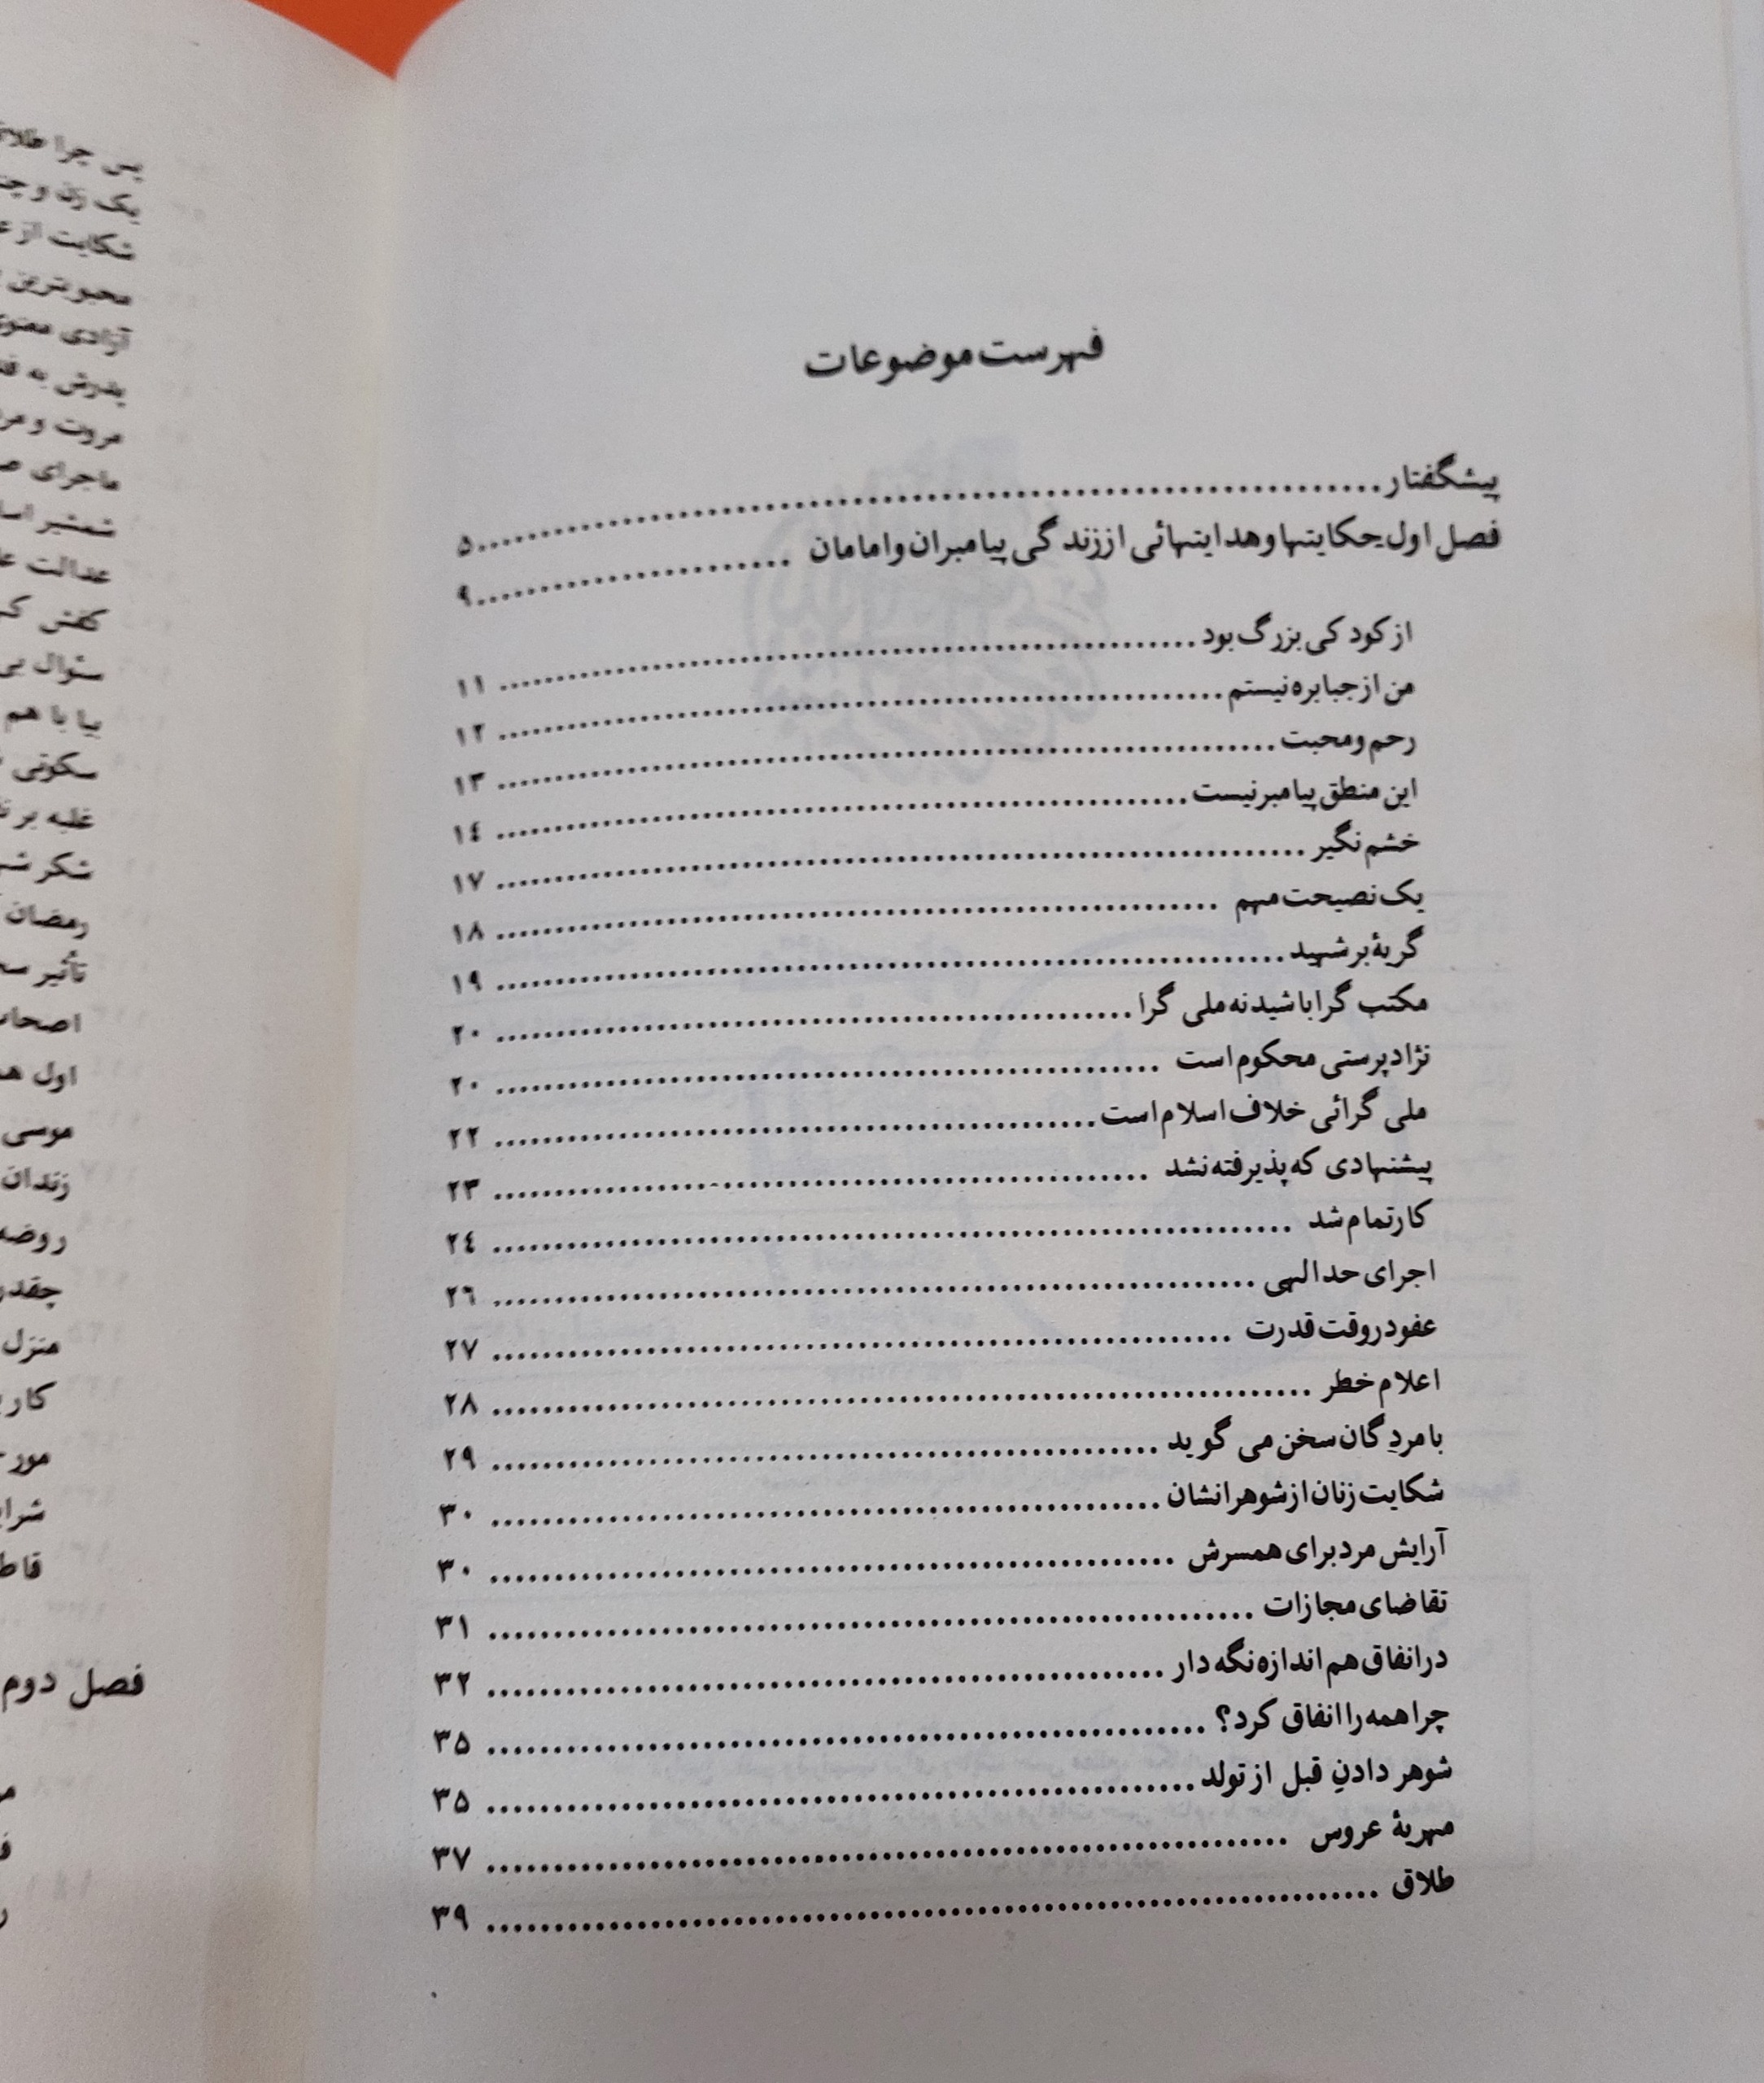 فهرست موضوعات
پیشگفتار ........ ۵
فصل اول حکایتها و هدایتهائی از زندگی پیامبران و امامان ........ ۹
از کودکی بزرگ بود ........ ۱۱
من از جبابره نیستم ........ ۱۲
رحم و محبت ........ ۱۳
این منطق پیامبر نیست ........ ۱٤
خشم نگیر ........ ۱۷
یک نصیحت مهم ........ ۱۸
گریهٔ بر شهید ........ ۱۹
مکتب گرا باشید نه ملی گرا ........ ۲۰
نژاد پرستی محکوم است ........ ۲۰
ملی گرائی خلاف اسلام است ........ ۲۲
پیشنهادی که پذیرفته نشد ........ ۲۳
کار تمام شد ........ ۲٤
اجرای حد الهی ........ ۲٦
عفو در وقت قدرت ........ ۲۷
اعلام خطر ........ ۲۸
با مردِگان سخن می گوید ........ ۲۹
شکایت زنان از شوهرانشان ........ ۳۰
آرایش مرد برای همسرش ........ ۳۰
تقاضای مجازات ........ ۳۱
در انفاق هم اندازه نگه دار ........ ۳۲
چرا همه را انفاق کرد؟ ........ ۳۵
شوهر دادنِ قبل از تولد ........ ۳۵
مهریهٔ عروس ........ ۳۷
طلاق ........ ۳۹
پس چرا
یک زن و
شکایت از
محبوبترین
آزادی
پدرش به
مروت و
ماجرای
شمشیر
عدالت
کفش
سئوال
بیا با هم
سکوتی
غلبه بر
شکر
رمضان
تأثیر
اول
موسی
زندان
روضه
منزل
فصل دوم